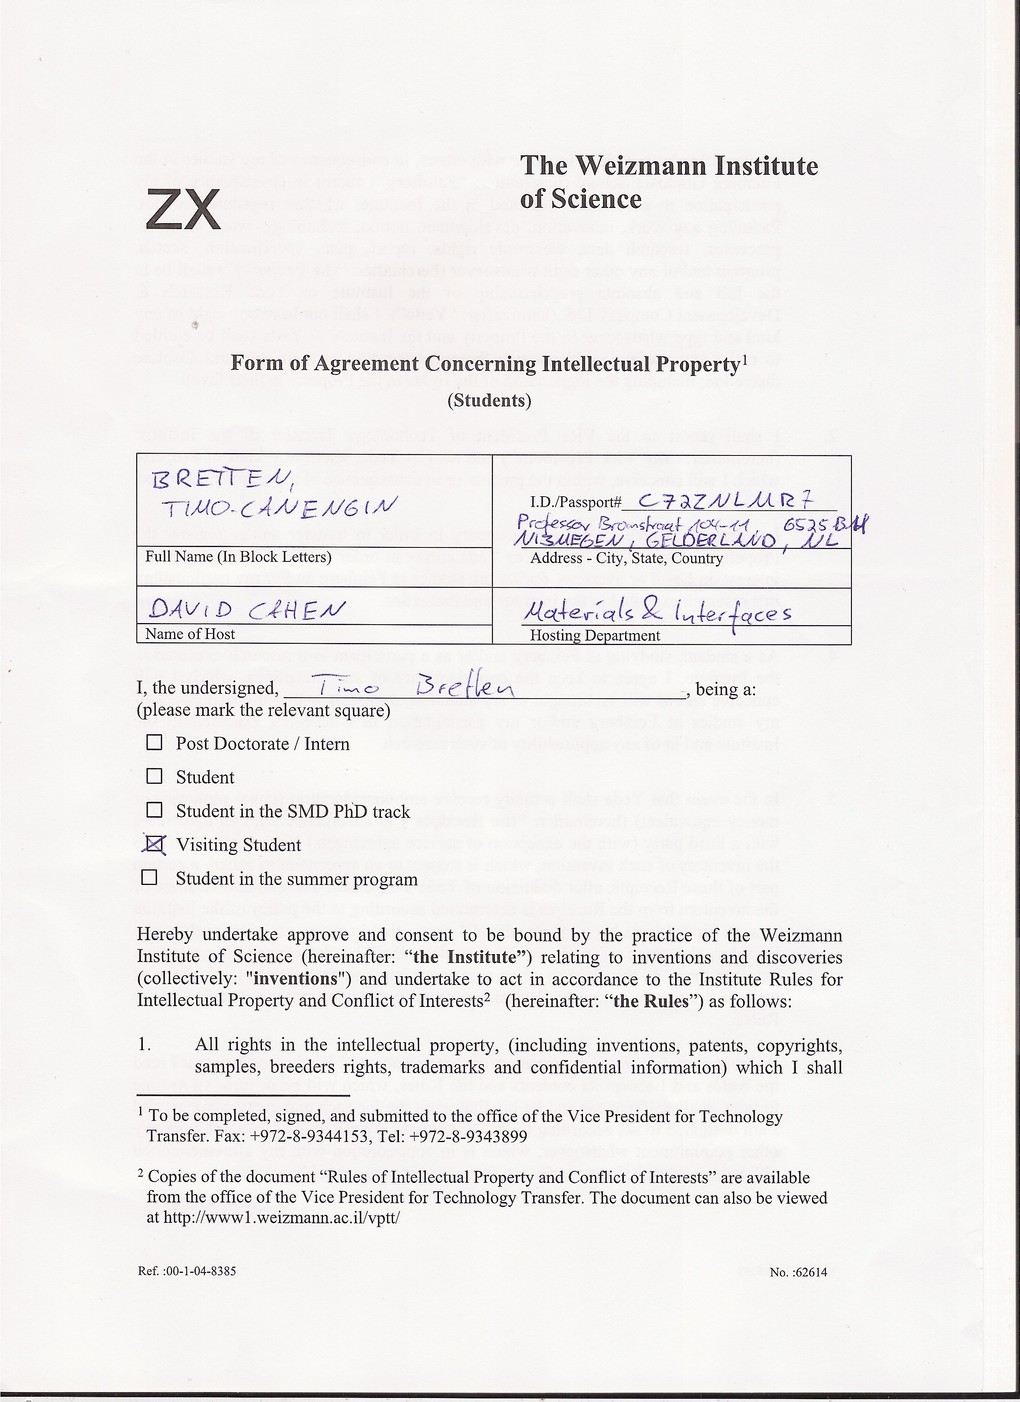 The Weizmann Institute
of Science
ZX
Form of Agreement Concerning Intellectual Property¹
(Students)
BRETTEN,
TIMO-CANENGIN
Full Name (In Block Letters)
I.D./Passport# C72ZNLMR7
Professor Bromstraat 104-11, 6525 BH
NIJMEGEN, GELDERLAND, NL
Address - City, State, Country
DAVID CAHEN
Name of Host
Materials & Interfaces
Hosting Department
I, the undersigned, Timo Bretten, being a:
(please mark the relevant square)
Post Doctorate / Intern
Student
Student in the SMD PhD track
Visiting Student
Student in the summer program
Hereby undertake approve and consent to be bound by the practice of the Weizmann
Institute of Science (hereinafter: “the Institute”) relating to inventions and discoveries
(collectively: "inventions") and undertake to act in accordance to the Institute Rules for
Intellectual Property and Conflict of Interests² (hereinafter: “the Rules”) as follows:
1. All rights in the intellectual property, (including inventions, patents, copyrights,
samples, breeders rights, trademarks and confidential information) which I shall
¹ To be completed, signed, and submitted to the office of the Vice President for Technology
Transfer. Fax: +972-8-9344153, Tel: +972-8-9343899
² Copies of the document “Rules of Intellectual Property and Conflict of Interests” are available
from the office of the Vice President for Technology Transfer. The document can also be viewed
at http://www1.weizmann.ac.il/vptt/
Ref. :00-1-04-8385
No. :62614